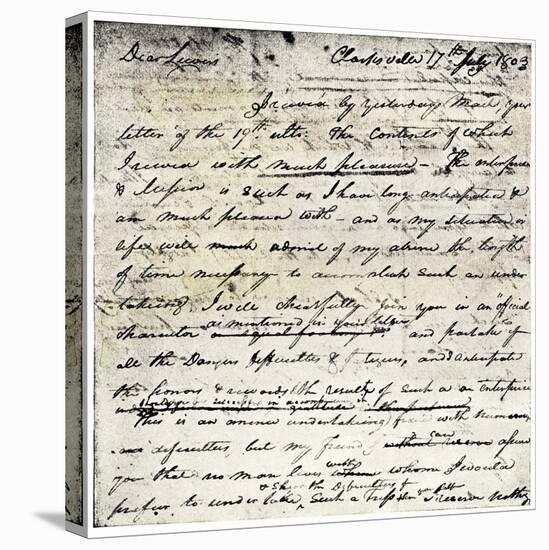 Dear Lewis Clarksville 17th July 1803
I received by yesterdays Mail your
letter of the 19th ulto: The Contents of which
I received with much pleasure – The enterprise
& Mission is Such as I have long anticipated &
am much pleased with – and as my situation in
life will admit of my absence the length
of time necessary to accomplish such an under
taking I will chearfully join you in an official
Charector as mentioned in your letter and partake of
all the Dangers Difficulties & fatigues, and anticipate
the honors & rewards of the result of Such a an enterprise
This is an amence undertaking with numerous
difficulties, but my friend I can assure
you that no man lives with whome I would
prefur to undertake Such a Trip